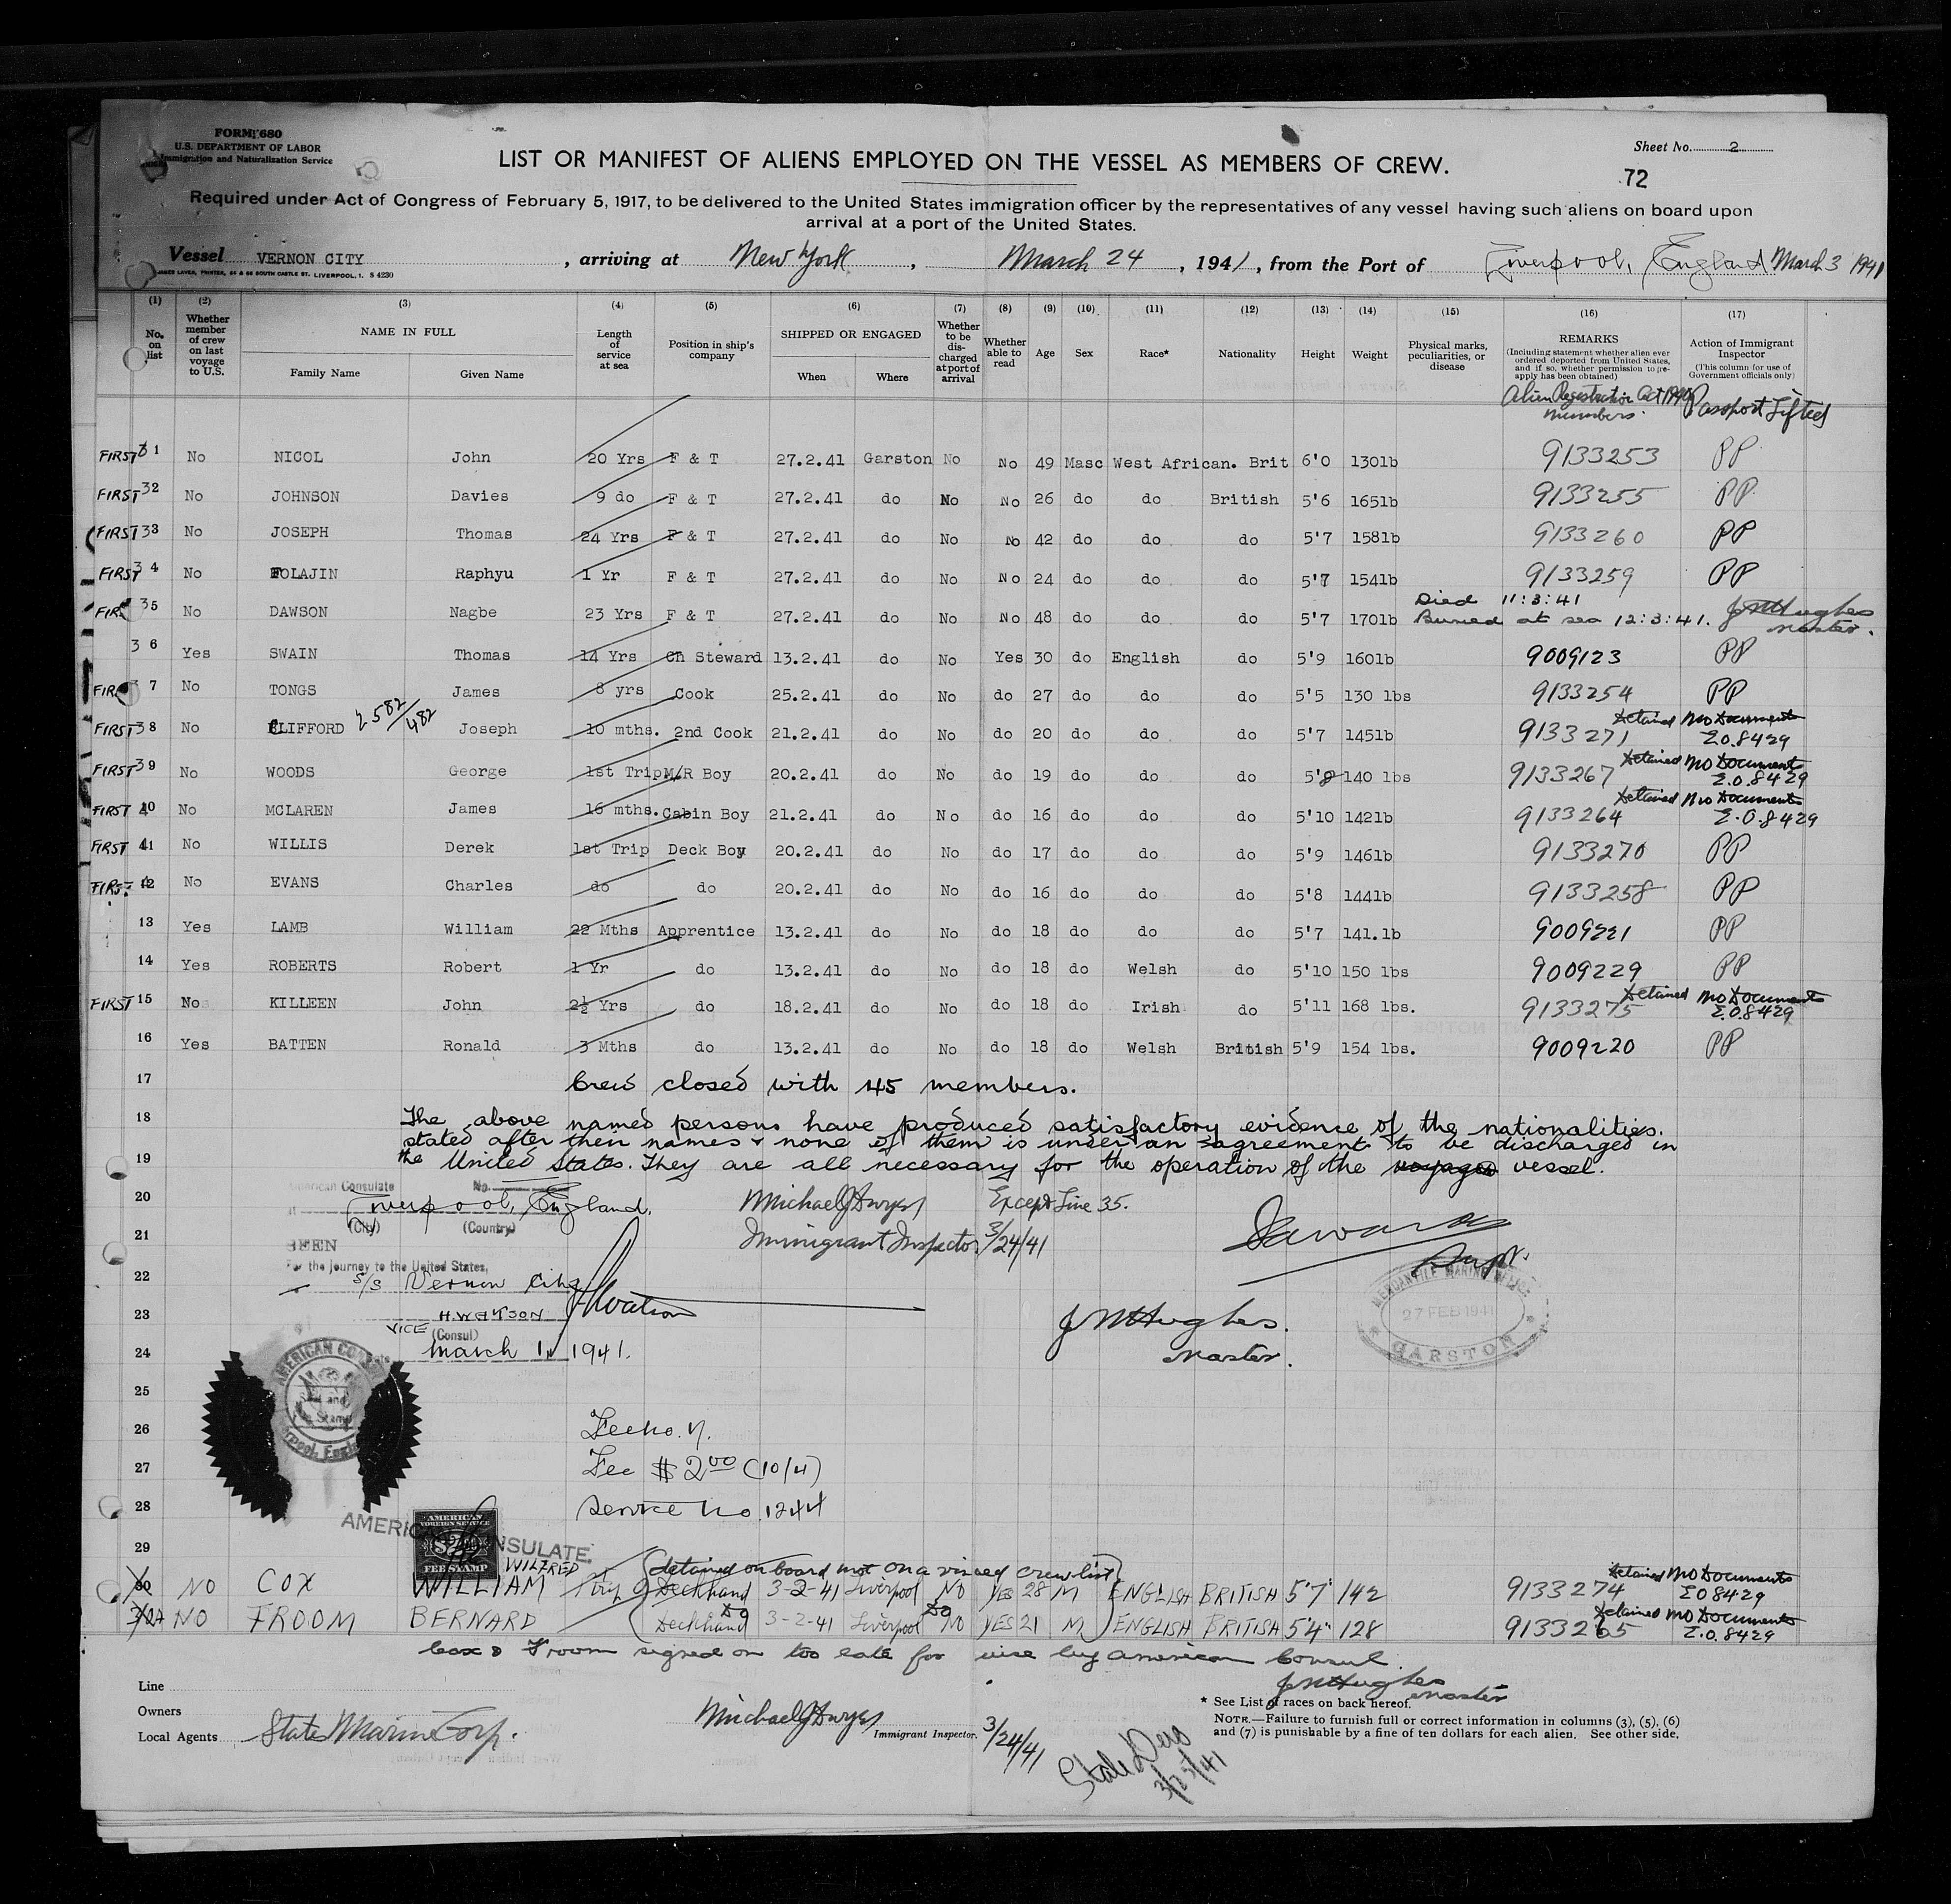 FORM 680
U.S. DEPARTMENT OF LABOR
Immigration and Naturalization Service
LIST OR MANIFEST OF ALIENS EMPLOYED ON THE VESSEL AS MEMBERS OF CREW.
Sheet No. 2
72
Required under Act of Congress of February 5, 1917, to be delivered to the United States immigration officer by the representatives of any vessel having such aliens on board upon
arrival at a port of the United States.
Vessel VERNON CITY, arriving at New York, March 24, 1941, from the Port of Liverpool, England March 3 1941
JAMES LAVER, PRINTER, 64 & 66 SOUTH CASTLE ST. LIVERPOOL, 1. S 4230
(1) (2) (3) (4) (5) (6) (7) (8) (9) (10) (11) (12) (13) (14) (15) (16) (17)
No. on list
Whether member of crew on last voyage to U.S.
NAME IN FULL
Family Name Given Name
Length of service at sea
Position in ship's company
SHIPPED OR ENGAGED
When Where
Whether to be discharged at port of arrival
Whether able to read
Age
Sex
Race*
Nationality
Height
Weight
Physical marks, peculiarities, or disease
REMARKS
(Including statement whether alien ever ordered deported from United States, and if so, whether permission to re-apply has been obtained)
Action of Immigrant Inspector
(This column for use of Government officials only)
Alien Registration Act 1940 numbers.
Passport Lifted
FIRST 31 No NICOL John 20 Yrs F & T 27.2.41 Garston No No 49 Masc West African. Brit 6'0 130lb 9133253 PP
FIRST 32 No JOHNSON Davies 9 do F & T 27.2.41 do No No 26 do do British 5'6 165lb 9133255 PP
FIRST 33 No JOSEPH Thomas 24 Yrs F & T 27.2.41 do No No 42 do do do 5'7 158lb 9133260 PP
FIRST 34 No FOLAJIN Raphyu 1 Yr F & T 27.2.41 do No No 24 do do do 5'7 154lb 9133259 PP
Died 11:3:41
FIR 35 No DAWSON Nagbe 23 Yrs F & T 27.2.41 do No No 48 do do do 5'7 170lb Buried at sea 12:3:41. J M Hughes master.
36 Yes SWAIN Thomas 14 Yrs Ch Steward 13.2.41 do No Yes 30 do English do 5'9 160lb 9009123 PP
FIR 37 No TONGS James 8 yrs Cook 25.2.41 do No do 27 do do do 5'5 130 lbs 9133254 PP
FIRST 38 No CLIFFORD 2582/482 Joseph 10 mths. 2nd Cook 21.2.41 do No do 20 do do do 5'7 145lb 9133271 Detained No Documents E.O.8429
FIRST 39 No WOODS George 1st Trip M/R Boy 20.2.41 do No do 19 do do do 5'8 140 lbs 9133267 Detained No Documents E.O.8429
FIRST 40 No MCLAREN James 16 mths. Cabin Boy 21.2.41 do No do 16 do do do 5'10 142lb 9133264 Detained No Documents E.O.8429
FIRST 41 No WILLIS Derek 1st Trip Deck Boy 20.2.41 do No do 17 do do do 5'9 146lb 9133270 PP
FIRST 42 No EVANS Charles do do 20.2.41 do No do 16 do do do 5'8 144lb 9133258 PP
13 Yes LAMB William 22 Mths Apprentice 13.2.41 do No do 18 do do do 5'7 141.lb 9009221 PP
14 Yes ROBERTS Robert 1 Yr do 13.2.41 do No do 18 do Welsh do 5'10 150 lbs 9009229 PP
FIRST 15 No KILLEEN John 2½ Yrs do 18.2.41 do No do 18 do Irish do 5'11 168 lbs. 9133275 Detained No Documents E.O.8429
16 Yes BATTEN Ronald 3 Mths do 13.2.41 do No do 18 do Welsh British 5'9 154 lbs. 9009220 PP
17 Crew closed with 45 members.
18 The above named persons have produced satisfactory evidence of the nationalities.
stated after their names & none of them is under an agreement to be discharged in
19 the United States. They are all necessary for the operation of the voyage vessel.
American Consulate No.
20 Liverpool, England. Michael J Dwyer Except Line 35.
(City) (Country)
21 Immigrant Inspector 3/24/41
SEEN
For the journey to the United States,
22 S/S Vernon City Supt.
MERCANTILE MARINE OFFICE
27 FEB 1941
GARSTON
23 H. WATSON HWatson J M Hughes.
VICE (Consul)
24 March 1, 1941. Master.
AMERICAN CONSULATE
Liverpool, England
25
26 Fee No. 7.
27 Fee $ 2.00 (10/4)
28 Service No. 1244
AMERICAN CONSULATE.
AMERICAN
FOREIGN SERVICE
FEE STAMP
29
WILFRED (detained on board not on a visaed crew list)
30 NO COX WILLIAM 1 trip Deckhand 3-2-41 Liverpool NO YES 28 M ENGLISH BRITISH 5'7" 142 9133274 Detained No Documents EO8429
NO FROOM BERNARD Do Deckhand 3-2-41 Liverpool Do NO YES 21 M ENGLISH BRITISH 5'4" 128 9133265 Detained No Documents E.O.8429
Cox & Froom signed on too late for vise by American Consul.
J M Hughes
Master
Line
Owners
Local Agents States Marine Corp.
Michael J Dwyer
Immigrant Inspector. 3/24/41
3/25/41
* See List of races on back hereof.
NOTE.—Failure to furnish full or correct information in columns (3), (5), (6)
and (7) is punishable by a fine of ten dollars for each alien. See other side.